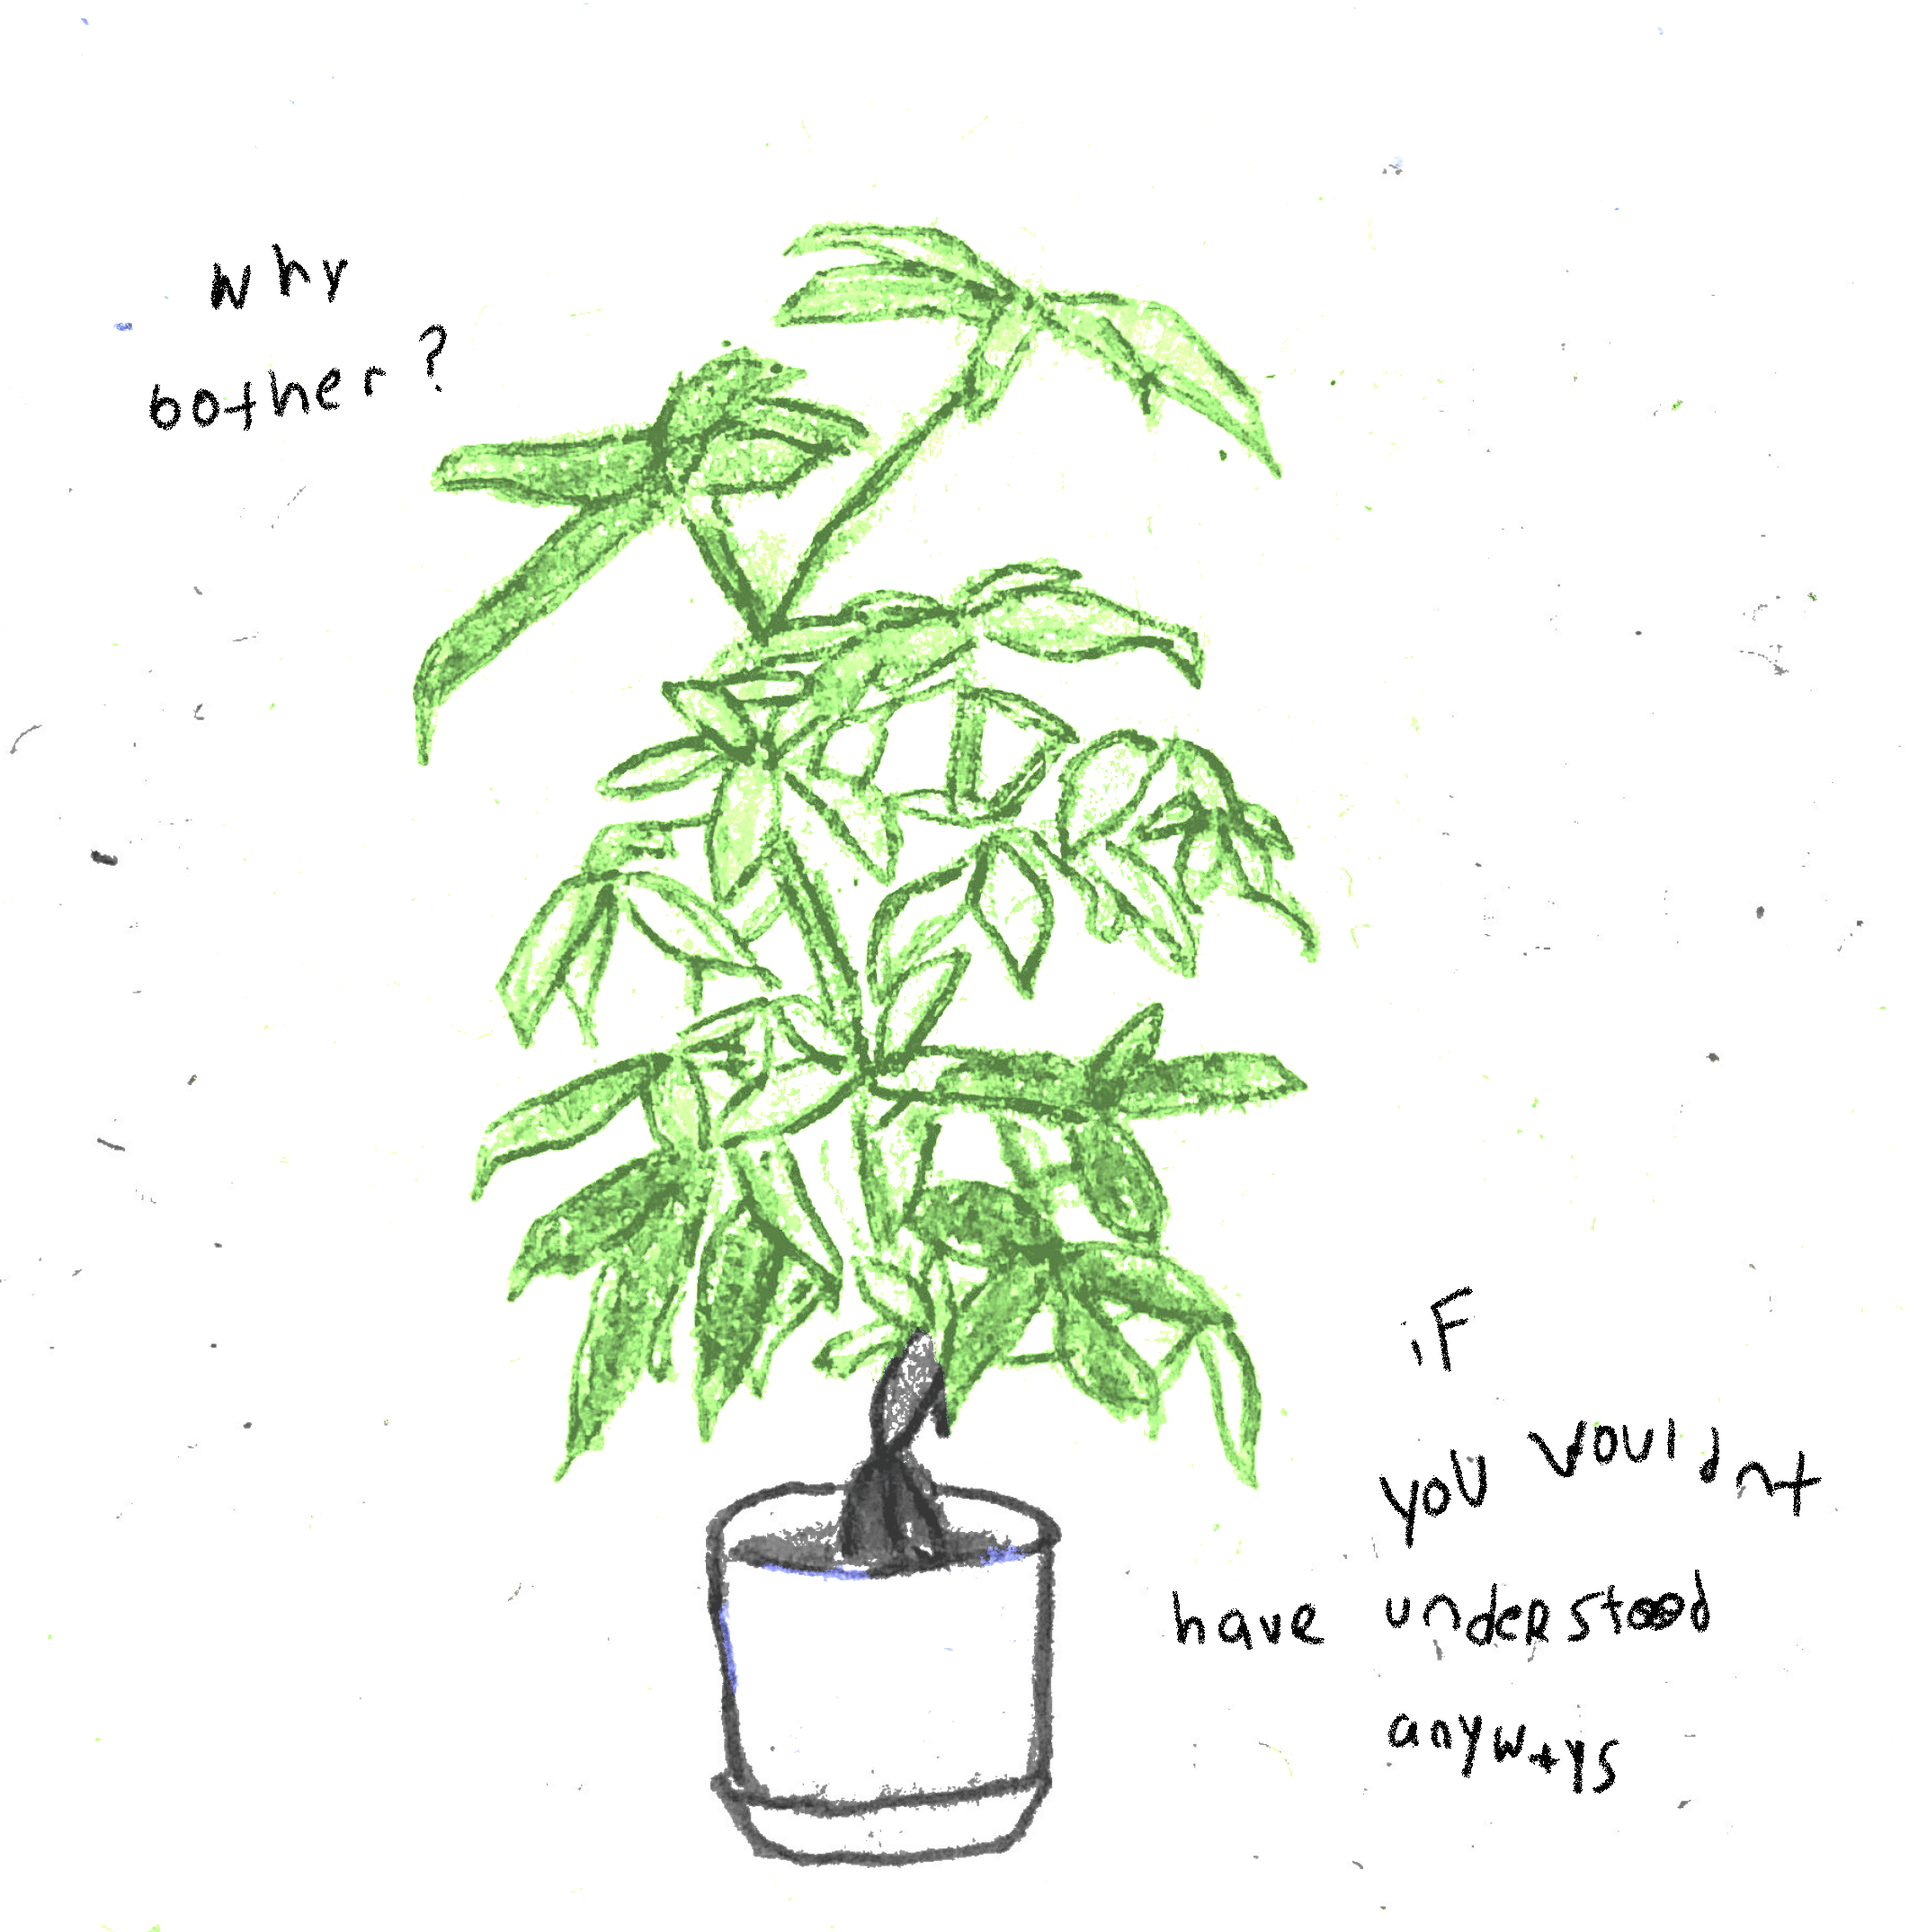 why
bother?
iF
you vouldnt
have understood
anyw+ys